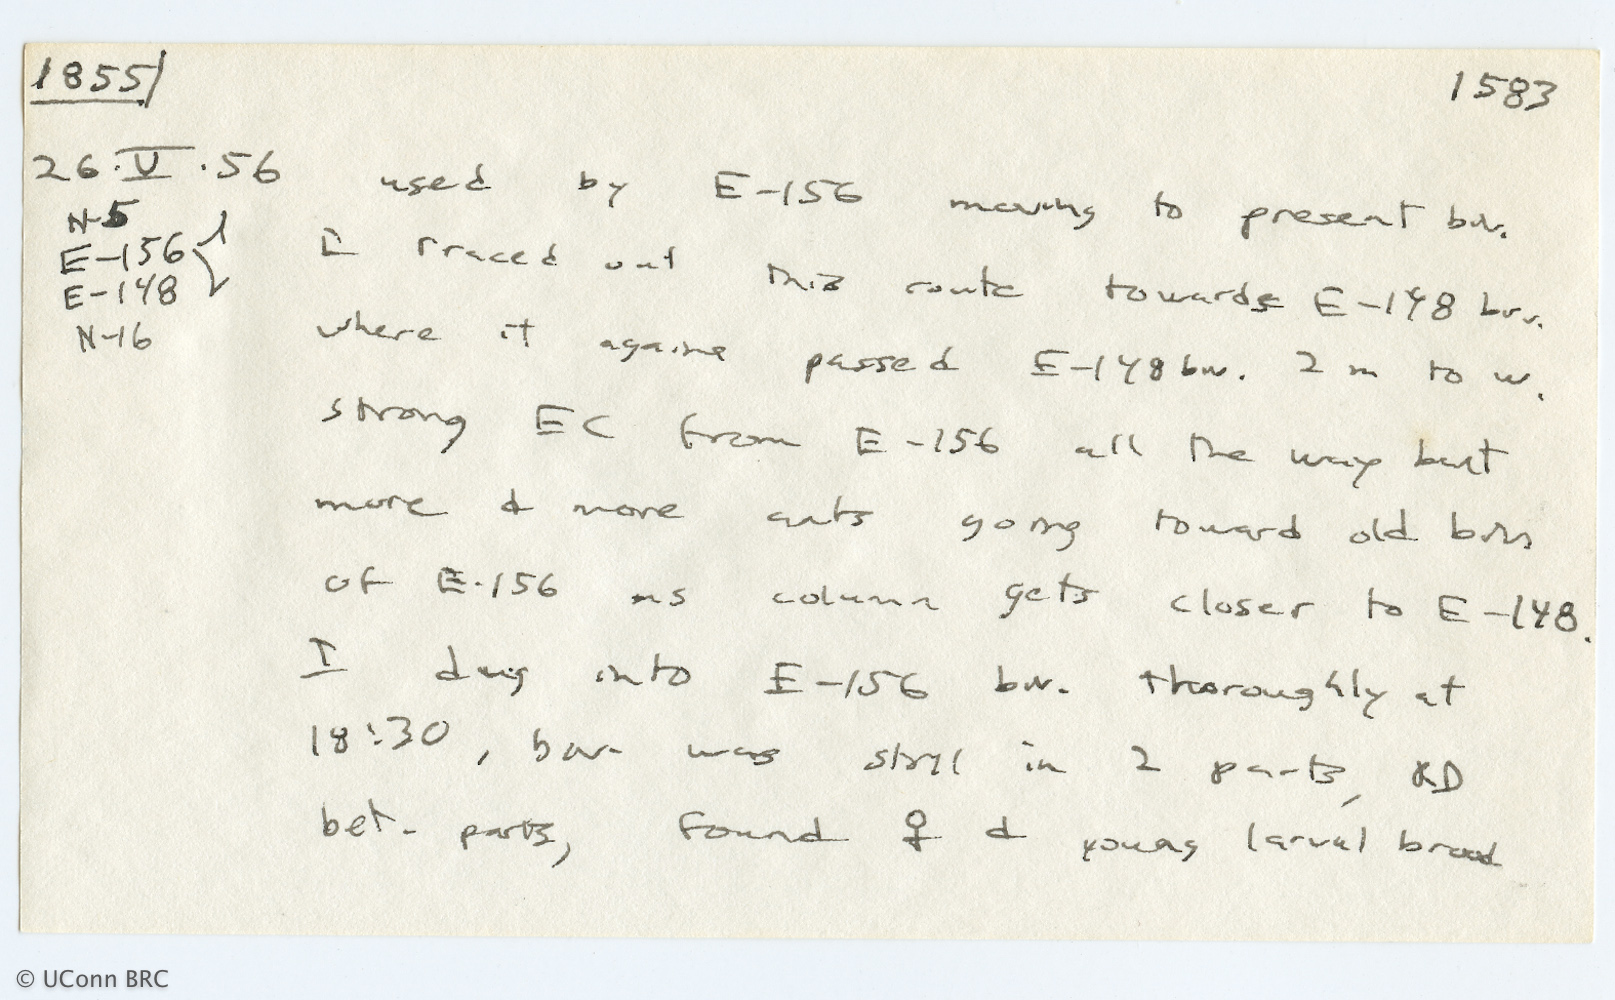 1855/
1583
26.V.56
N-5
E-156
E-148
N-16
used by E-156 moving to present biv.
I traced out this route towards E-148 biv.
where it againe passed E-148 biv. 2 m to w.
strong EC from E-156 all the way but
more & more ants going toward old biv
of E-156 as column gets closer to E-148.
I dug into E-156 biv. thoroughly at
18:30, biv was still in 2 parts,
bet. parts, found ♀ & young larval brood
© UConn BRC